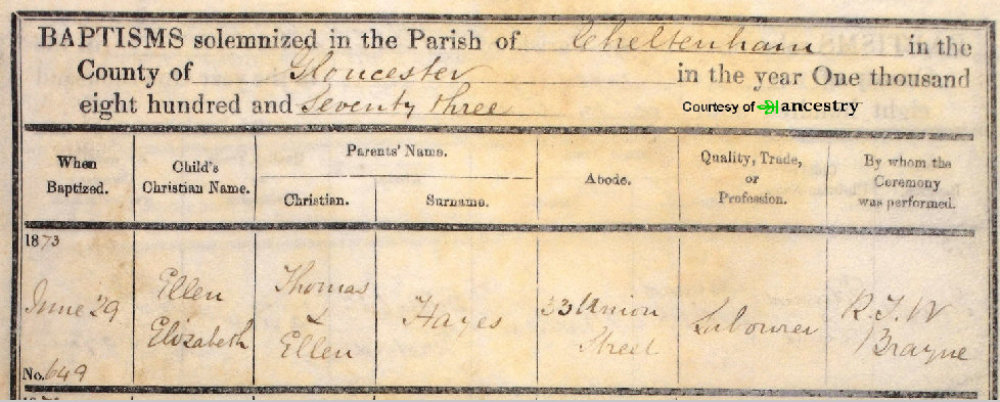 BAPTISMS solemnized in the Parish of Cheltenham in the
County of Gloucester in the year One thousand
eight hundred and Seventy three
Courtesy of ancestry
When Baptized.
Child's Christian Name.
Parents' Name.
Christian.
Surname.
Abode.
Quality, Trade, or Profession.
By whom the Ceremony was performed.
1873
June 29
No. 649
Ellen
Elizabeth
Thomas
&
Ellen
Hayes
33 Union
Street
Labourer
R. J. W
Brayne